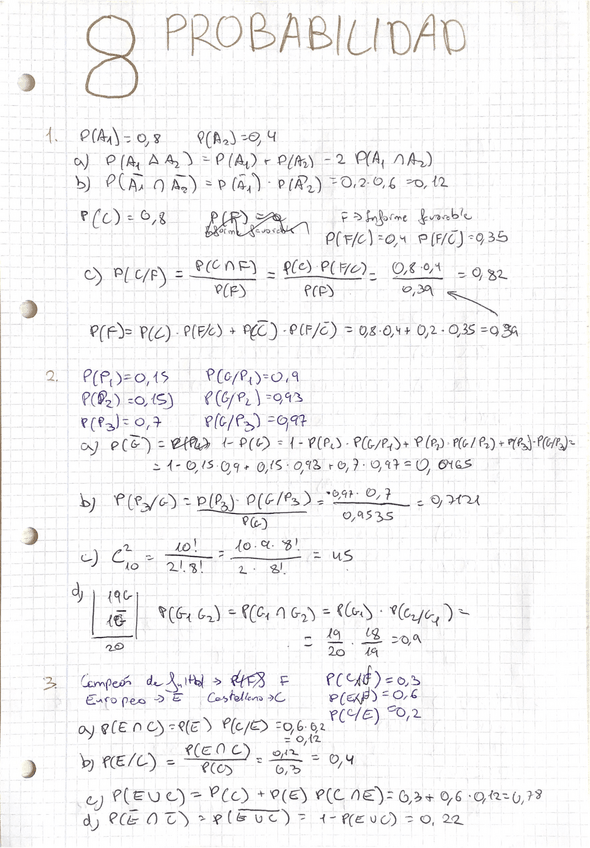 8 PROBABILIDAD
1. P(A₁)=0,8 P(A₂)=0,4
a) P(A₁ Δ A₂) = P(A₁) + P(A₂) - 2 P(A₁ ∩ A₂)
b) P(A̅₁ ∩ A̅₂) = P(A̅₁) · P(A̅₂) = 0,2·0,6 = 0,12
P(C) = 0,8 F → Informe favorable
P(F/C)=0,4 P(F/C̅)=0,35
c) P(C/F) = P(C∩F) / P(F) = P(C)·P(F/C) / P(F) = 0,8·0,4 / 0,39 = 0,82
P(F) = P(C) · P(F/C) + P(C̅) · P(F/C̅) = 0,8·0,4 + 0,2·0,35 = 0,39
2. P(P₁)=0,15 P(G/P₁)=0,9
P(P₂)=0,15 P(G/P₂)=0,93
P(P₃)=0,7 P(G/P₃)=0,97
a) P(G̅) = 1-P(G) = 1-P(P₁)·P(G/P₁)+P(P₂)·P(G/P₂)+P(P₃)·P(G/P₃)=
= 1-0,15·0,9+0,15·0,93+0,7·0,97=0,0465
b) P(P₃/G) = P(P₃)·P(G/P₃) / P(G) = 0,97·0,7 / 0,9535 = 0,7121
c) C₁₀² = 10! / 2!·8! = 10·9·8! / 2·8! = 45
d) 19G
1G̅ P(G₁G₂) = P(G₁∩G₂) = P(G₁)·P(G₂/G₁) =
20 = 19/20 · 18/19 = 0,9
3. Campeón de fútbol → F P(C/F)=0,3
Europeo → E Castellano → C P(E/F)=0,6
P(C/E)=0,2
a) P(E∩C)=P(E) P(C/E) =0,6·0,2
= 0,12
b) P(E/C) = P(E∩C) / P(C) = 0,12 / 0,3 = 0,4
c) P(E∪C) = P(C) + P(E) P(C∩E̅)=0,3+0,6·0,12=0,78
d) P(E̅ ∩ C̅) = P(E̅∪̅C̅) = 1-P(E∪C) = 0,22